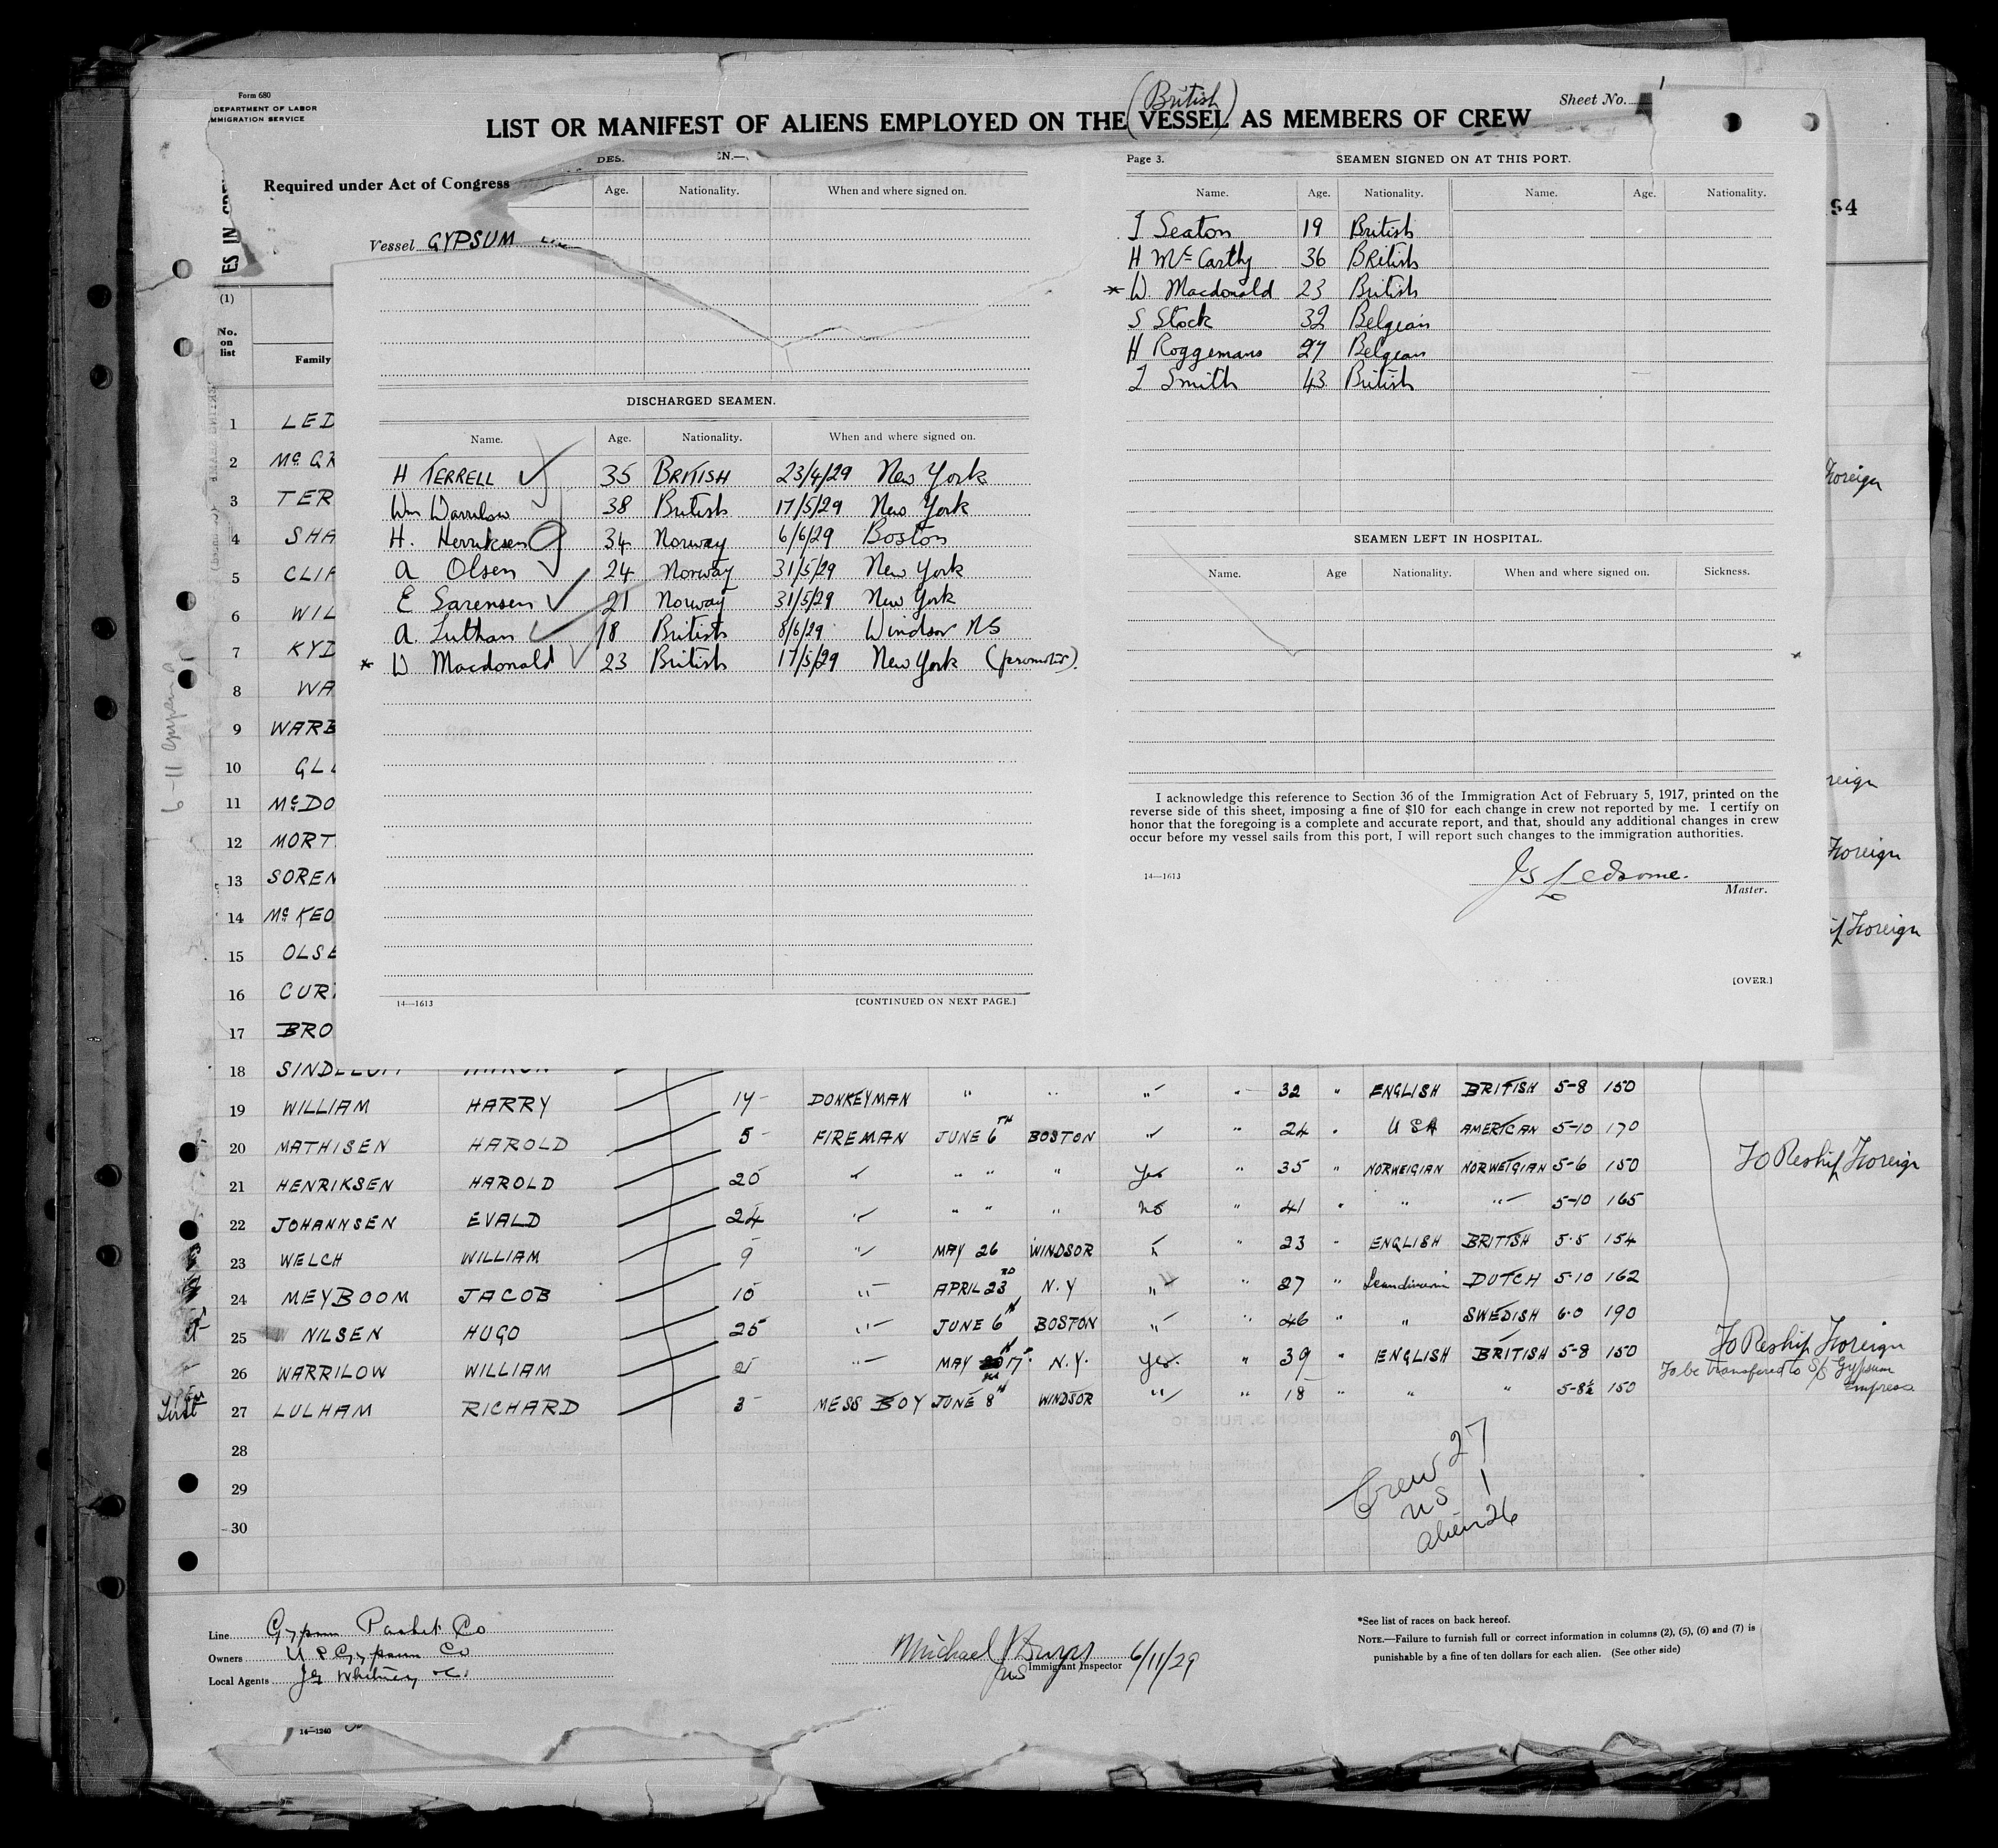 Form 680
DEPARTMENT OF LABOR
MMIGRATION SERVICE
Sheet No. 1
(British)
LIST OR MANIFEST OF ALIENS EMPLOYED ON THE VESSEL AS MEMBERS OF CREW
Required under Act of Congress
Vessel GYPSUM
ES IN
94
(1)
No. on list
Family
1 LED
2 Mc GR
3 TER
4 SHA
5 CLIF
6 WIL
7 KYD
8 WA
9 WARB
10 GLE
11 McDO
12 MORT
13 SOREN
14 Mc KEO
15 OLSE
16 CUR
17 BRO
18 SIND
DES.
EN.—
Age. Nationality. When and where signed on.
DISCHARGED SEAMEN.
Name. Age. Nationality. When and where signed on.
H TERRELL 35 BRITISH 23/4/29 New York
Wm Warrilow 38 British 17/5/29 New York
H. Henriksen 34 Norway 6/6/29 Boston
A Olsen 24 Norway 31/5/29 New York
E Sorensen 21 Norway 31/5/29 New York
A. Lulham 18 British 8/6/29 Windsor NS
* W Macdonald 23 British 17/5/29 New York (promoted).
14—1613
[CONTINUED ON NEXT PAGE.]
Page 3.
SEAMEN SIGNED ON AT THIS PORT.
Name. Age. Nationality. Name. Age. Nationality.
Seaton 19 British
H McCarthy 36 British
* W. Macdonald 23 British
S Stock 32 Belgian
H Roggemans 27 Belgean
Smith 43 British
SEAMEN LEFT IN HOSPITAL.
Name. Age Nationality. When and where signed on. Sickness.
I acknowledge this reference to Section 36 of the Immigration Act of February 5, 1917, printed on the
reverse side of this sheet, imposing a fine of $10 for each change in crew not reported by me. I certify on
honor that the foregoing is a complete and accurate report, and that, should any additional changes in crew
occur before my vessel sails from this port, I will report such changes to the immigration authorities.
14—1613
Js Ledsome.
Master.
[OVER.]
Foreign
reign
Foreign
Foreign
32 " ENGLISH BRITISH 5-8 150
19 WILLIAM HARRY 14 DONKEYMAN " " " "
24 " USA AMERICAN 5-10 170
20 MATHISEN HAROLD 5 FIREMAN JUNE 6TH BOSTON " "
35 " NORWEIGIAN NORWEIGIAN 5-6 150 To Reship Foreign
21 HENRIKSEN HAROLD 20 " " " " Yes "
41 " " " 5-10 165
22 JOHANNSEN EVALD 24 " " " " no "
23 " ENGLISH BRITISH 5-5 154
23 WELCH WILLIAM 9 " MAY 26 WINDSOR " "
27 " Scandinavian DUTCH 5-10 162
24 MEYBOOM JACOB 10 " APRIL 23RD N.Y " "
46 " " SWEDISH 6-0 190
25 NILSEN HUGO 25 " JUNE 6th BOSTON " "
39 " ENGLISH BRITISH 5-8 150 To Reship Foreign
26 WARRILOW WILLIAM " MAY 17th N.Y. Yes. "
18 " " " 5-8½ 150 To be transfered to S/S Gypsum Empress
27 LULHAM RICHARD 3 MESS BOY JUNE 8th WINDSOR " "
28
29
30
Crew 27
US 1
alien 26
Line Gypsum Packet Co
Owners U S Gypsum Co
Local Agents JG Whitney & Co
Michael
Immigrant Inspector 6/11/29
*See list of races on back hereof.
NOTE.—Failure to furnish full or correct information in columns (2), (5), (6) and (7) is
punishable by a fine of ten dollars for each alien. (See other side)
14—1240